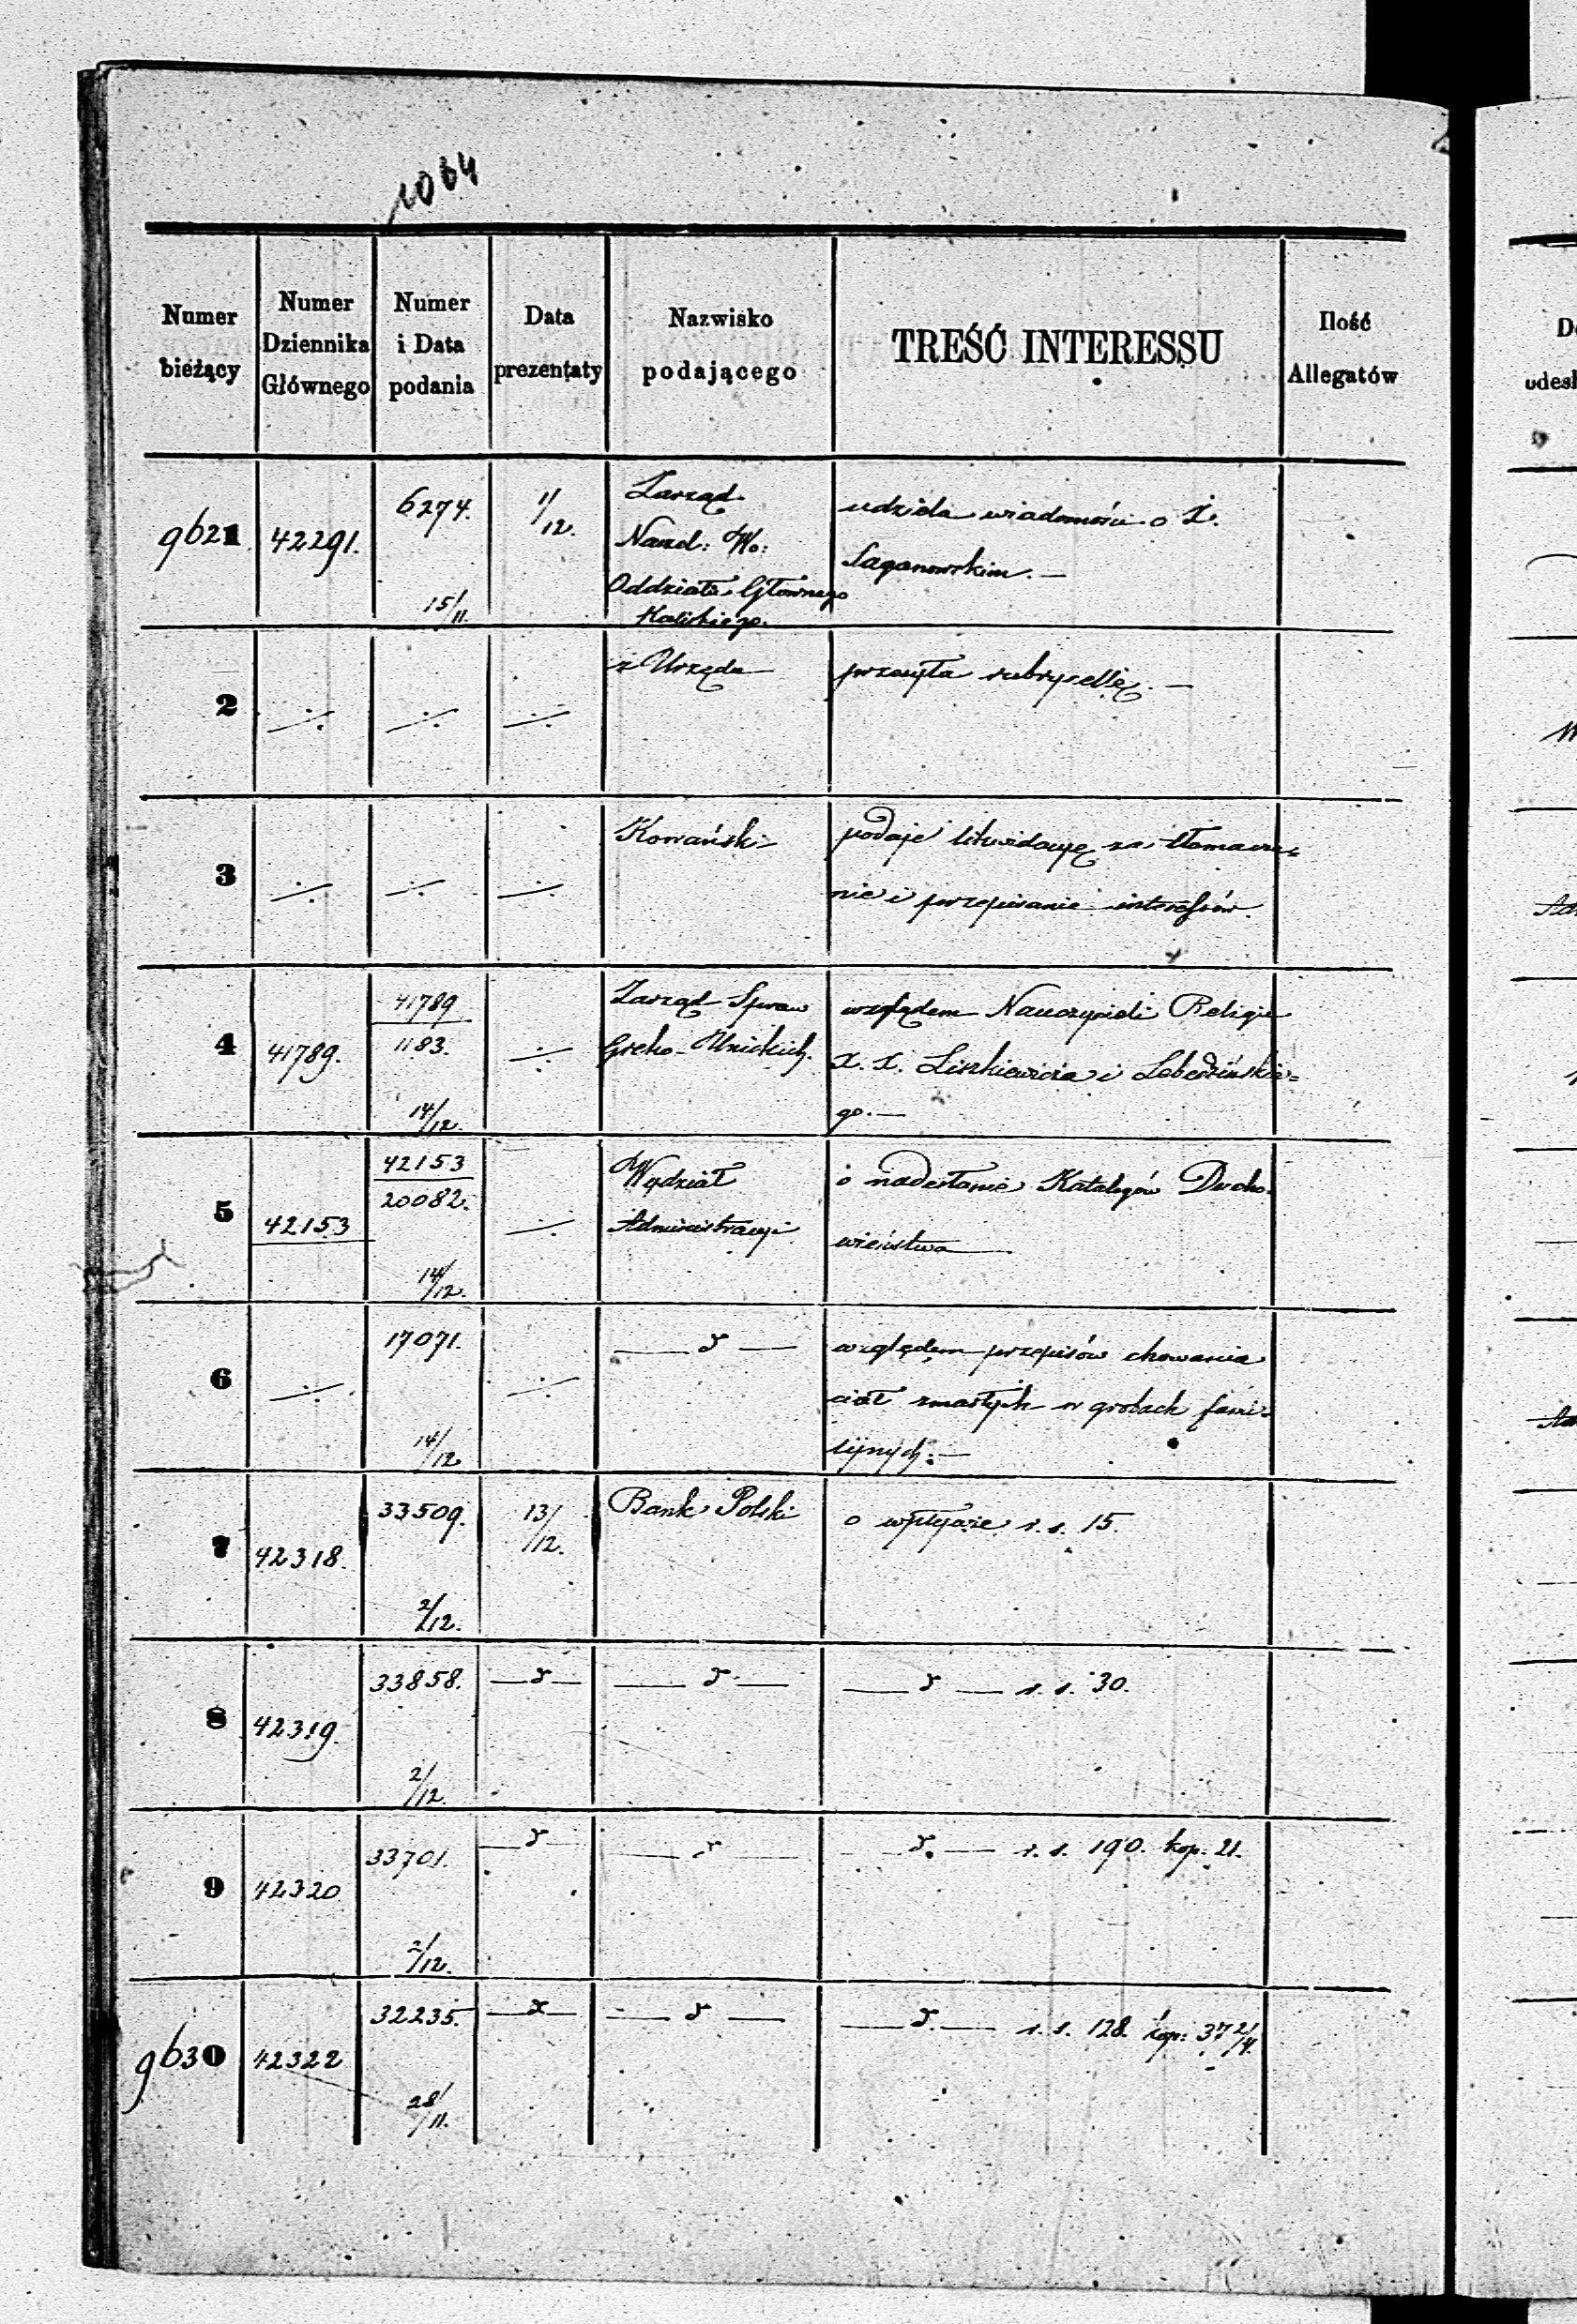 1064
Numer bieżący
Numer Dziennika Głównego
Numer i Data podania
Data prezentaty
Nazwisko podającego
TREŚĆ INTERESSU
Ilość Allegatów
9621 42291. 6274. 15/11. 1/12.
Zarząd
Naczel: Wo:
Oddziału Głównego
Kaliskiego.
udziela wiadomości o X.
Saganowskim. —
2 ·/. ·/. ·/.
z Urzędu
przesyła rubrycellę. —
3 ·/. ·/. ·/.
Kowański
podaje likwidacyę za tłomacze=
nie i przepisanie interessów.
4 41789. 41789 1183. 14/12. ·/.
Zarząd Spraw
Greko-Unickich.
względem Nauczycieli Religii
X. X. Liszkiewicza i Lebedińskie=
go. —
5 42153 42153 20082. 14/12. ·/.
Wydział
Administracyi
o nadesłanie Katalogów Ducho=
wieństwa —
6 ·/. 17071. 14/12 ·/. — d —
względem przepisów chowania
ciał zmarłych w grobach fami=
lijnych. —
7 42318. 33509. 2/12. 13/12.
Bank Polski
o wpływie r. s. 15.
8 42319. 33858. 2/12. — d — — d — — d — r. s. 30.
9 42320 33701. 2/12. — d — — d — — d — r. s. 190. kop. 21.
9630 42322 32235. 28/11. — d — — d — — d — r. s. 128. kop: 37 2/4.